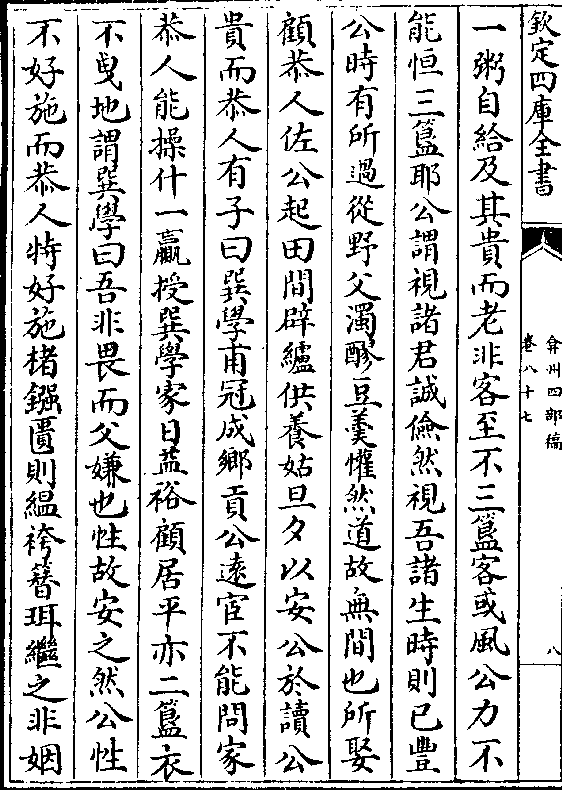 欽定四庫全書
弇州四部稿
卷八十七
八
一粥自給及其貴而老非客至不三簋客或風公力不
能恒三簋耶公謂視諸君誠儉然視吾諸生時則已豐
公時有所過從野父濁醪豆羮懽然道故無間也所娶
顧恭人佐公起田間辟纑供養姑旦夕以安公於讀公
貴而恭人有子曰巽學甫冠成鄉貢公遠宦不能問家
恭人能操什一贏授巽學家日益裕顧居平亦二簋衣
不曳地謂巽學曰吾非畏而父嫌也性故安之然公性
不好施而恭人特好施楮鏹匱則緼袴簪珥繼之非姻